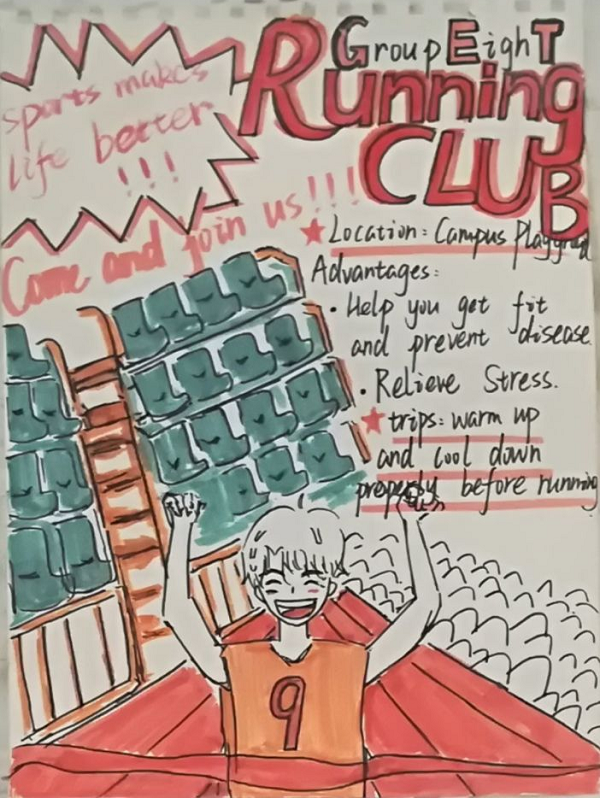 Group EighT
Running
CLUB
sports makes
life better
!!!
Come and join us!!!
Location: Campus Playground
Advantages:
· Help you get fit
and prevent disease.
· Relieve Stress.
trips: warm up
and cool down
properly before running
9